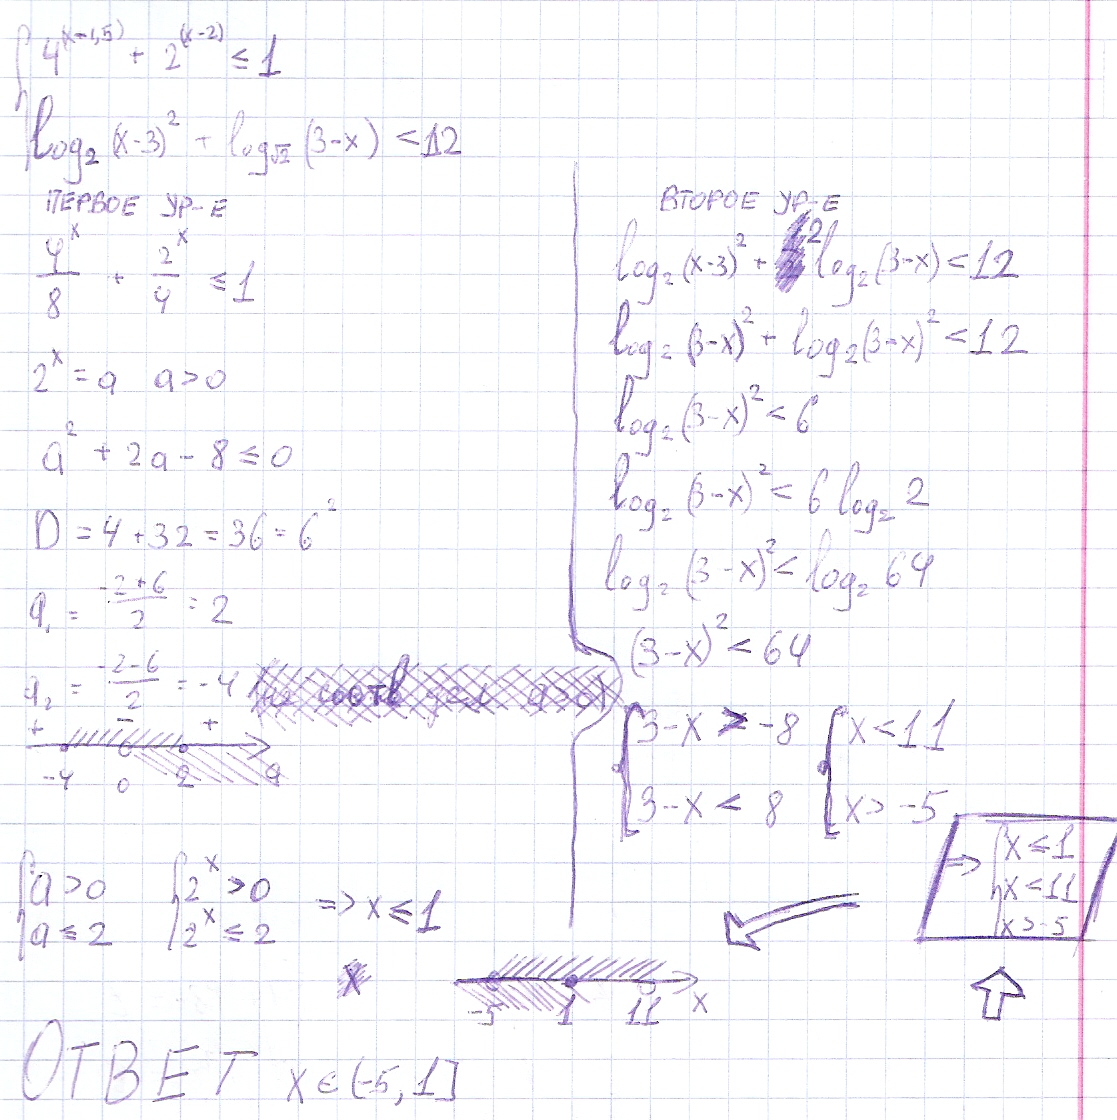 4^(x-1,5) + 2^(x-2) ≤ 1
log₂(x-3)² + log_√2 (3-x) < 12
ПЕРВОЕ УР-Е
4^x/8 + 2^x/4 ≤ 1
2^x = a a>0
a² + 2a - 8 ≤ 0
D = 4 + 32 = 36 = 6²
a₁ = (-2+6)/2 = 2
a₂ = (-2-6)/2 = -4
+ - +
-4 0 2 a
{a>0 {2^x>0
{a≤2 {2^x≤2 => x≤1
ВТОРОЕ УР-Е
log₂(x-3)² + 2 log₂(3-x) < 12
log₂(3-x)² + log₂(3-x)² < 12
log₂(3-x)² < 6
log₂(3-x)² < 6 log₂ 2
log₂(3-x)² < log₂ 64
(3-x)² < 64
{3-x > -8 {x < 11
{3-x < 8 {x > -5
=> {x ≤ 1
{x < 11
{x > -5
x
-5 1 11 x
ОТВЕТ x ∈ (-5, 1]